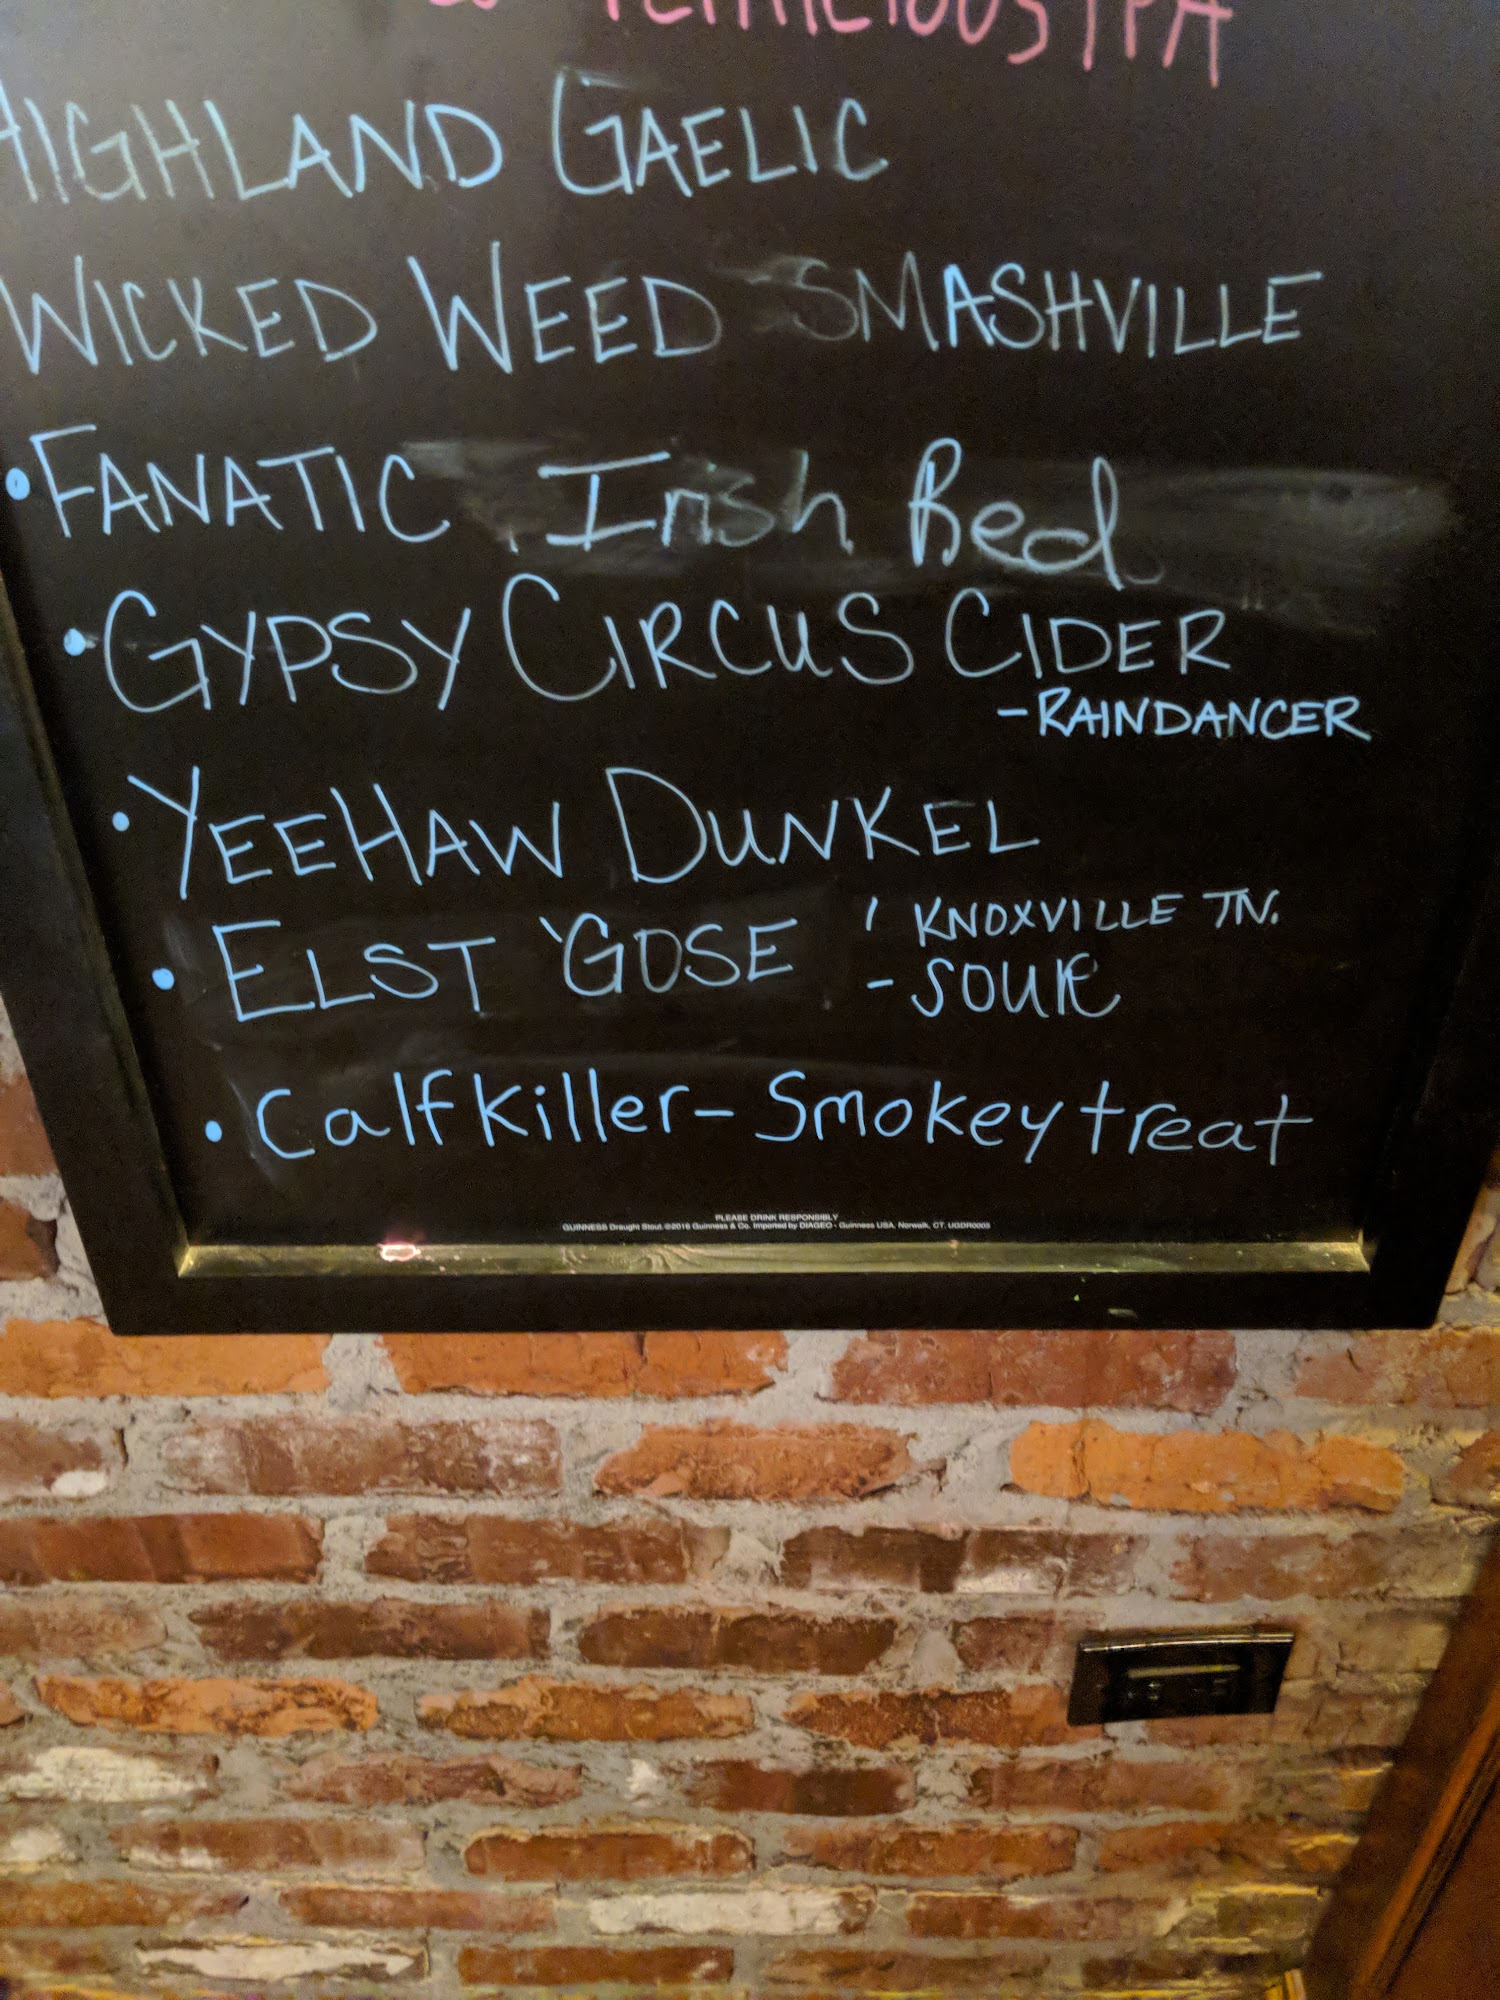 IPA
HIGHLAND GAELIC
WICKED WEED SMASHVILLE
• FANATIC Irish Red
• GYPSY CIRCUS CIDER
- RAINDANCER
• YEEHAW DUNKEL
• ELST 'GOSE ' KNOXVILLE TN.
- SOUR
• Calfkiller - Smokey treat
PLEASE DRINK RESPONSIBLY
GUINNESS Draught Stout. ©2016 Guinness & Co. Imported by DIAGEO - Guinness USA, Norwalk, CT. UGDR0003